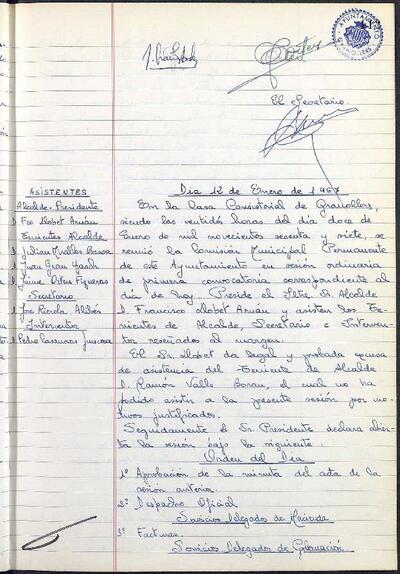 AYUNTAMIENTO
El Secretario
ASISTENTES
Alcalde-Presidente
D. Fco Llobet Arnán
Tenientes Alcalde
D. Julian
D. Juan Grau
D. Jaime Figueras
Secretario
D. Jose Ricola
Interventor
D. Pedro
Dia 12 de Enero de 1967
En la Casa Consistorial de Granollers,
siendo las ventidós horas del día doce de
Enero de mil novecientos sesenta y siete, se
reunió la Comisión Municipal Permanente
de este Ayuntamiento en sesión ordinaria
de primera convocatoria correspondiente al
día de hoy. Preside el Iltre. Sr. Alcalde
D. Francisco Llobet Arnán y asisten los Te-
nientes de Alcalde, Secretario e Interven-
tor reseñados al margen.
El Sr. Llobet da legal y probada excusa
de asistencia del Teniente de Alcalde
D. Ramón Valls Bonau, el cual no ha
podido asistir a la presente sesión por mo-
tivos justificados.
Seguidamente el Sr. Presidente declara abier-
ta la sesión bajo la siguiente
Orden del Dia
1º Aprobación de la minuta del acta de la
sesión anterior.
2º Despacho Oficial
Servicios Delegados de Hacienda
3º Facturas.
Servicios Delegados de Gobernación